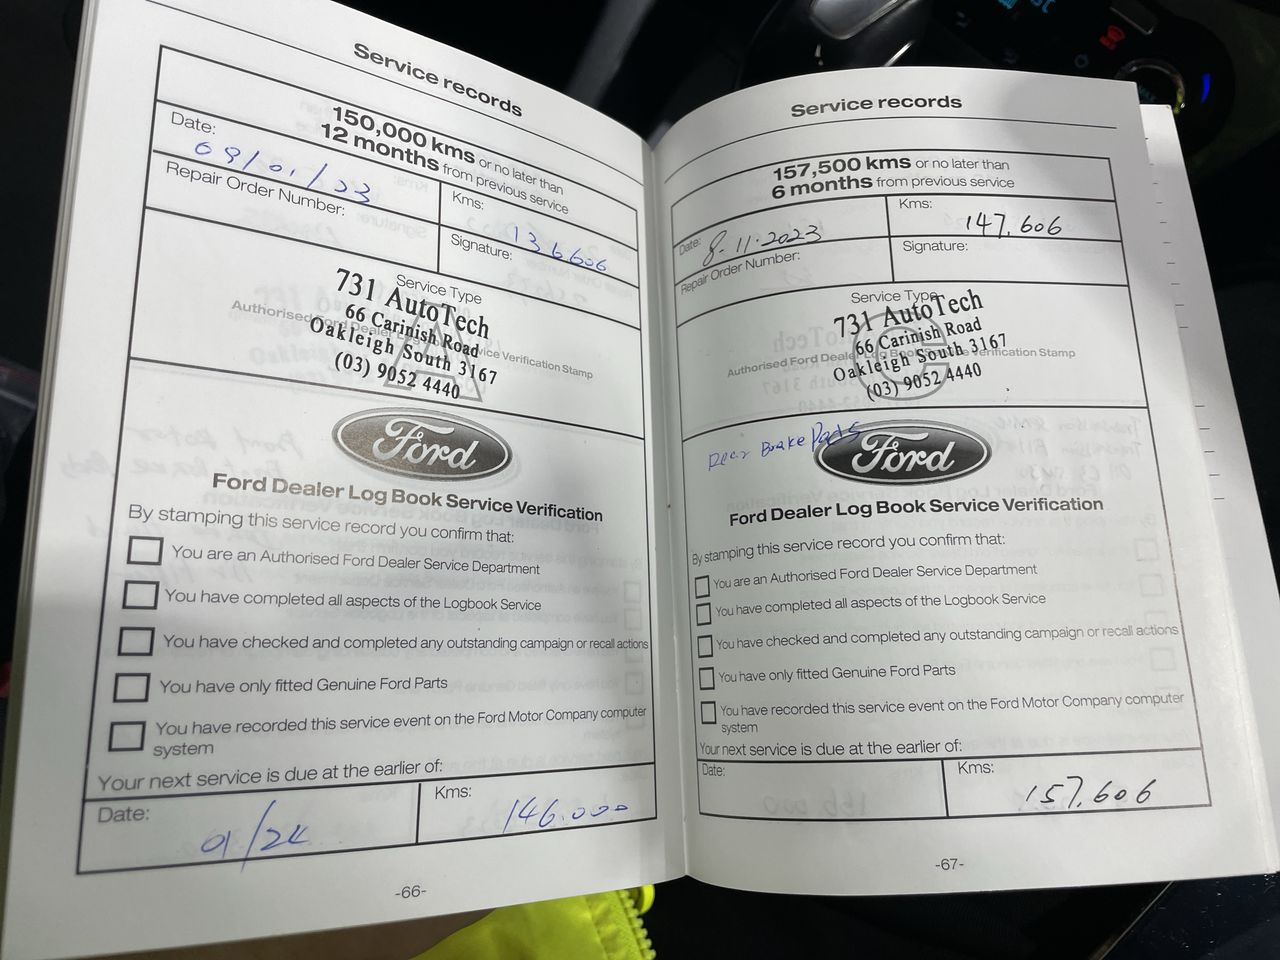 Service records
150,000 kms or no later than
12 months from previous service
Date:
09/01/23
Kms:
136606
Repair Order Number:
Signature:
Service Type
A
Authorised Ford Dealer Log Book Service Verification Stamp
731 AutoTech
66 Carinish Road
Oakleigh South 3167
(03) 9052 4440
Ford
Ford Dealer Log Book Service Verification
By stamping this service record you confirm that:
You are an Authorised Ford Dealer Service Department
You have completed all aspects of the Logbook Service
You have checked and completed any outstanding campaign or recall actions
You have only fitted Genuine Ford Parts
You have recorded this service event on the Ford Motor Company computer
system
Your next service is due at the earlier of:
Date:
01/24
Kms:
146.000
-66-
Service records
157,500 kms or no later than
6 months from previous service
Date:
8.11.2023
Kms:
147,606
Repair Order Number:
Signature:
Service Type
C
Authorised Ford Dealer Log Book Service Verification Stamp
731 AutoTech
66 Carinish Road
Oakleigh South 3167
(03) 9052 4440
Rear Brake Pads
Ford
Ford Dealer Log Book Service Verification
By stamping this service record you confirm that:
You are an Authorised Ford Dealer Service Department
You have completed all aspects of the Logbook Service
You have checked and completed any outstanding campaign or recall actions
You have only fitted Genuine Ford Parts
You have recorded this service event on the Ford Motor Company computer
system
Your next service is due at the earlier of:
Date:
Kms:
157,606
-67-